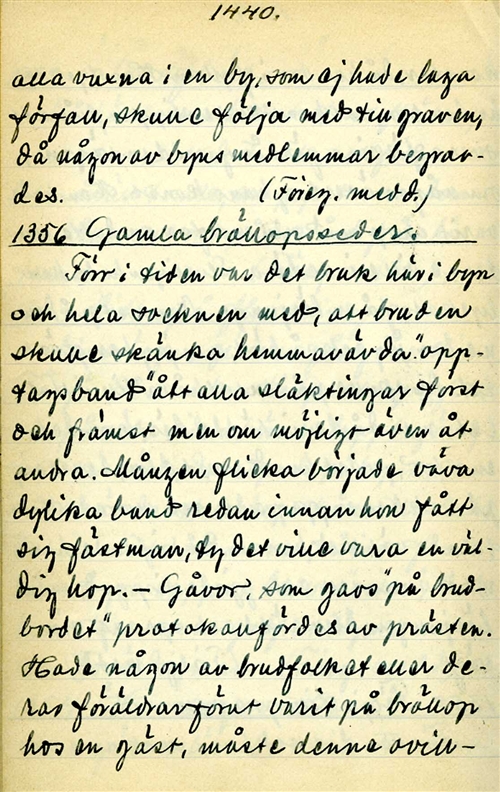 1440.
alla vuxna i en by, som ej hade laga
förfall, skulle följa med till graven,
då någon av byns medlemmar begrav-
des. (Föreg. medd.)
1356 Gamla bröllopsseder.
Förr i tiden var det bruk här i byn
och hela socknen med, att bruden
skulle skänka hemmavävda "opp-
tagsband" åt alla släktingar först
och främst men om möjligt även åt
andra. Mången flicka började väva
dylika band redan innan hon fått
sig fästman, ty det ville vara en väl-
dig hop. – Gåvor, som gavs "på brud-
bordet" protokollfördes av prästen.
Hade någon av brudfolket eller de-
ras föräldrar förut varit på bröllop
hos en gäst, måste denne ovill-